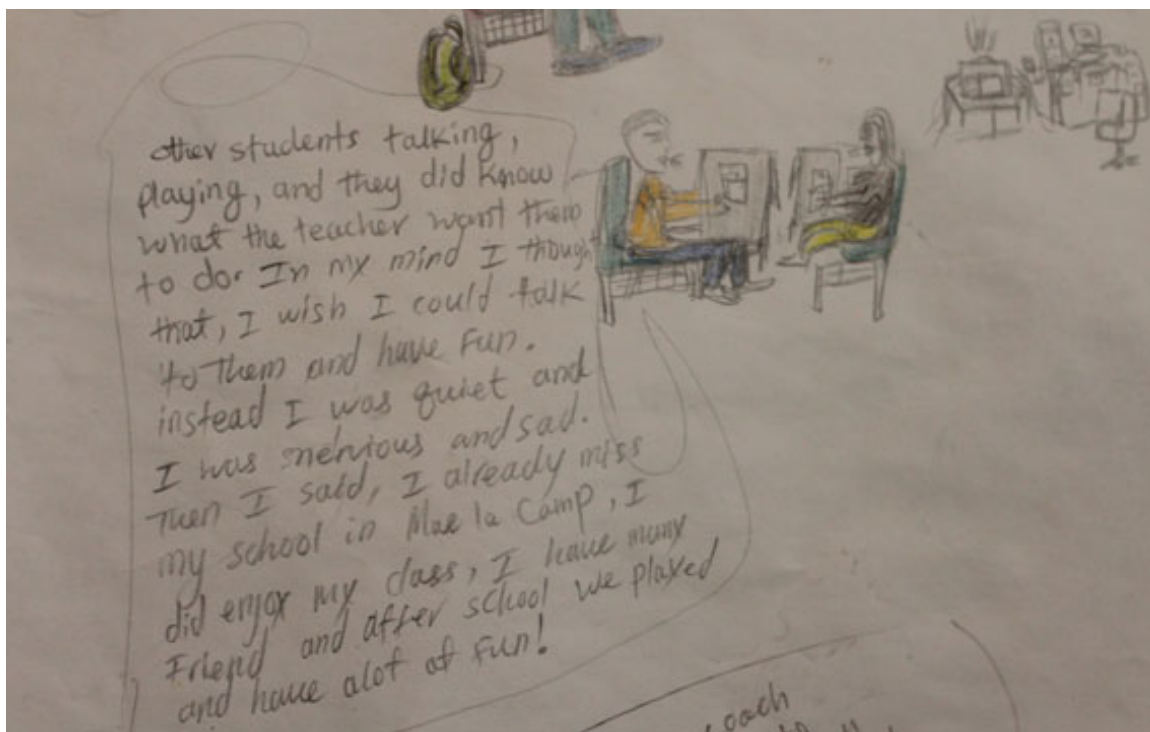 other students talking,
playing, and they did know
what the teacher want them
to do. In my mind I though
that, I wish I could talk
to them and have Fun.
instead I was quiet and
I was nervious and sad.
Then I said, I already miss
my school in Mae la Camp, I
did enjoy my class, I have many
Friend and after school we played
and have alot of Fun!
coach